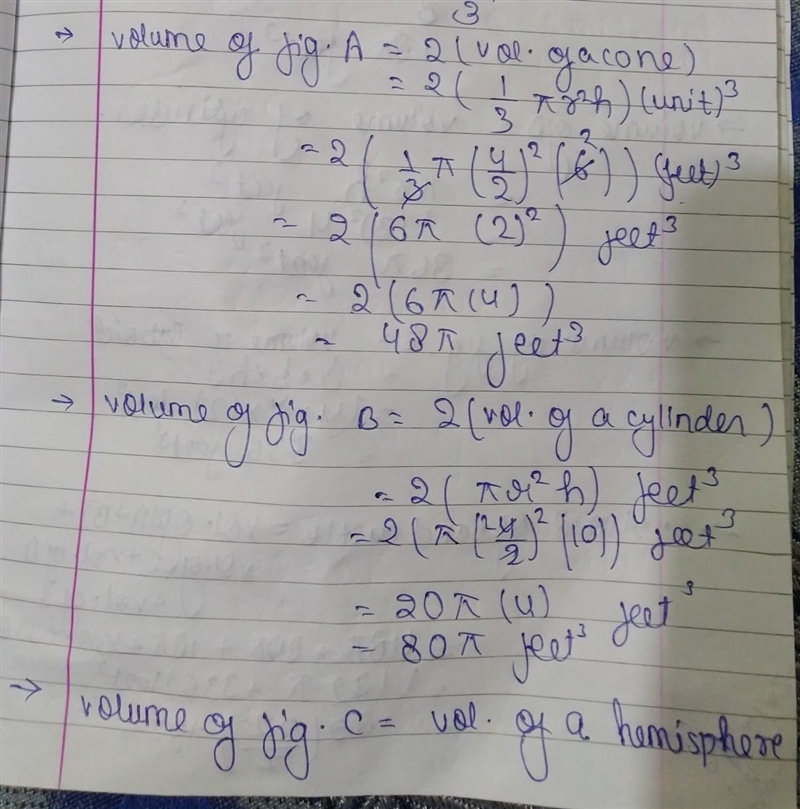 3
→ volume of fig. A = 2 (vol. of a cone)
= 2 ( 1/3 πr²h ) (unit)³
= 2 ( 1/3 π (4/2)² (6) 2 ) (feet)³
= 2 ( 6π (2)² ) feet³
= 2 ( 6π (4) )
= 48π feet³
→ volume of fig. B = 2 (vol. of a cylinder)
= 2 ( πr²h ) feet³
= 2 ( π (2 4/2)² (10) ) feet³
= 20π (4) feet³
= 80π feet³
→ volume of fig. C = vol. of a hemisphere